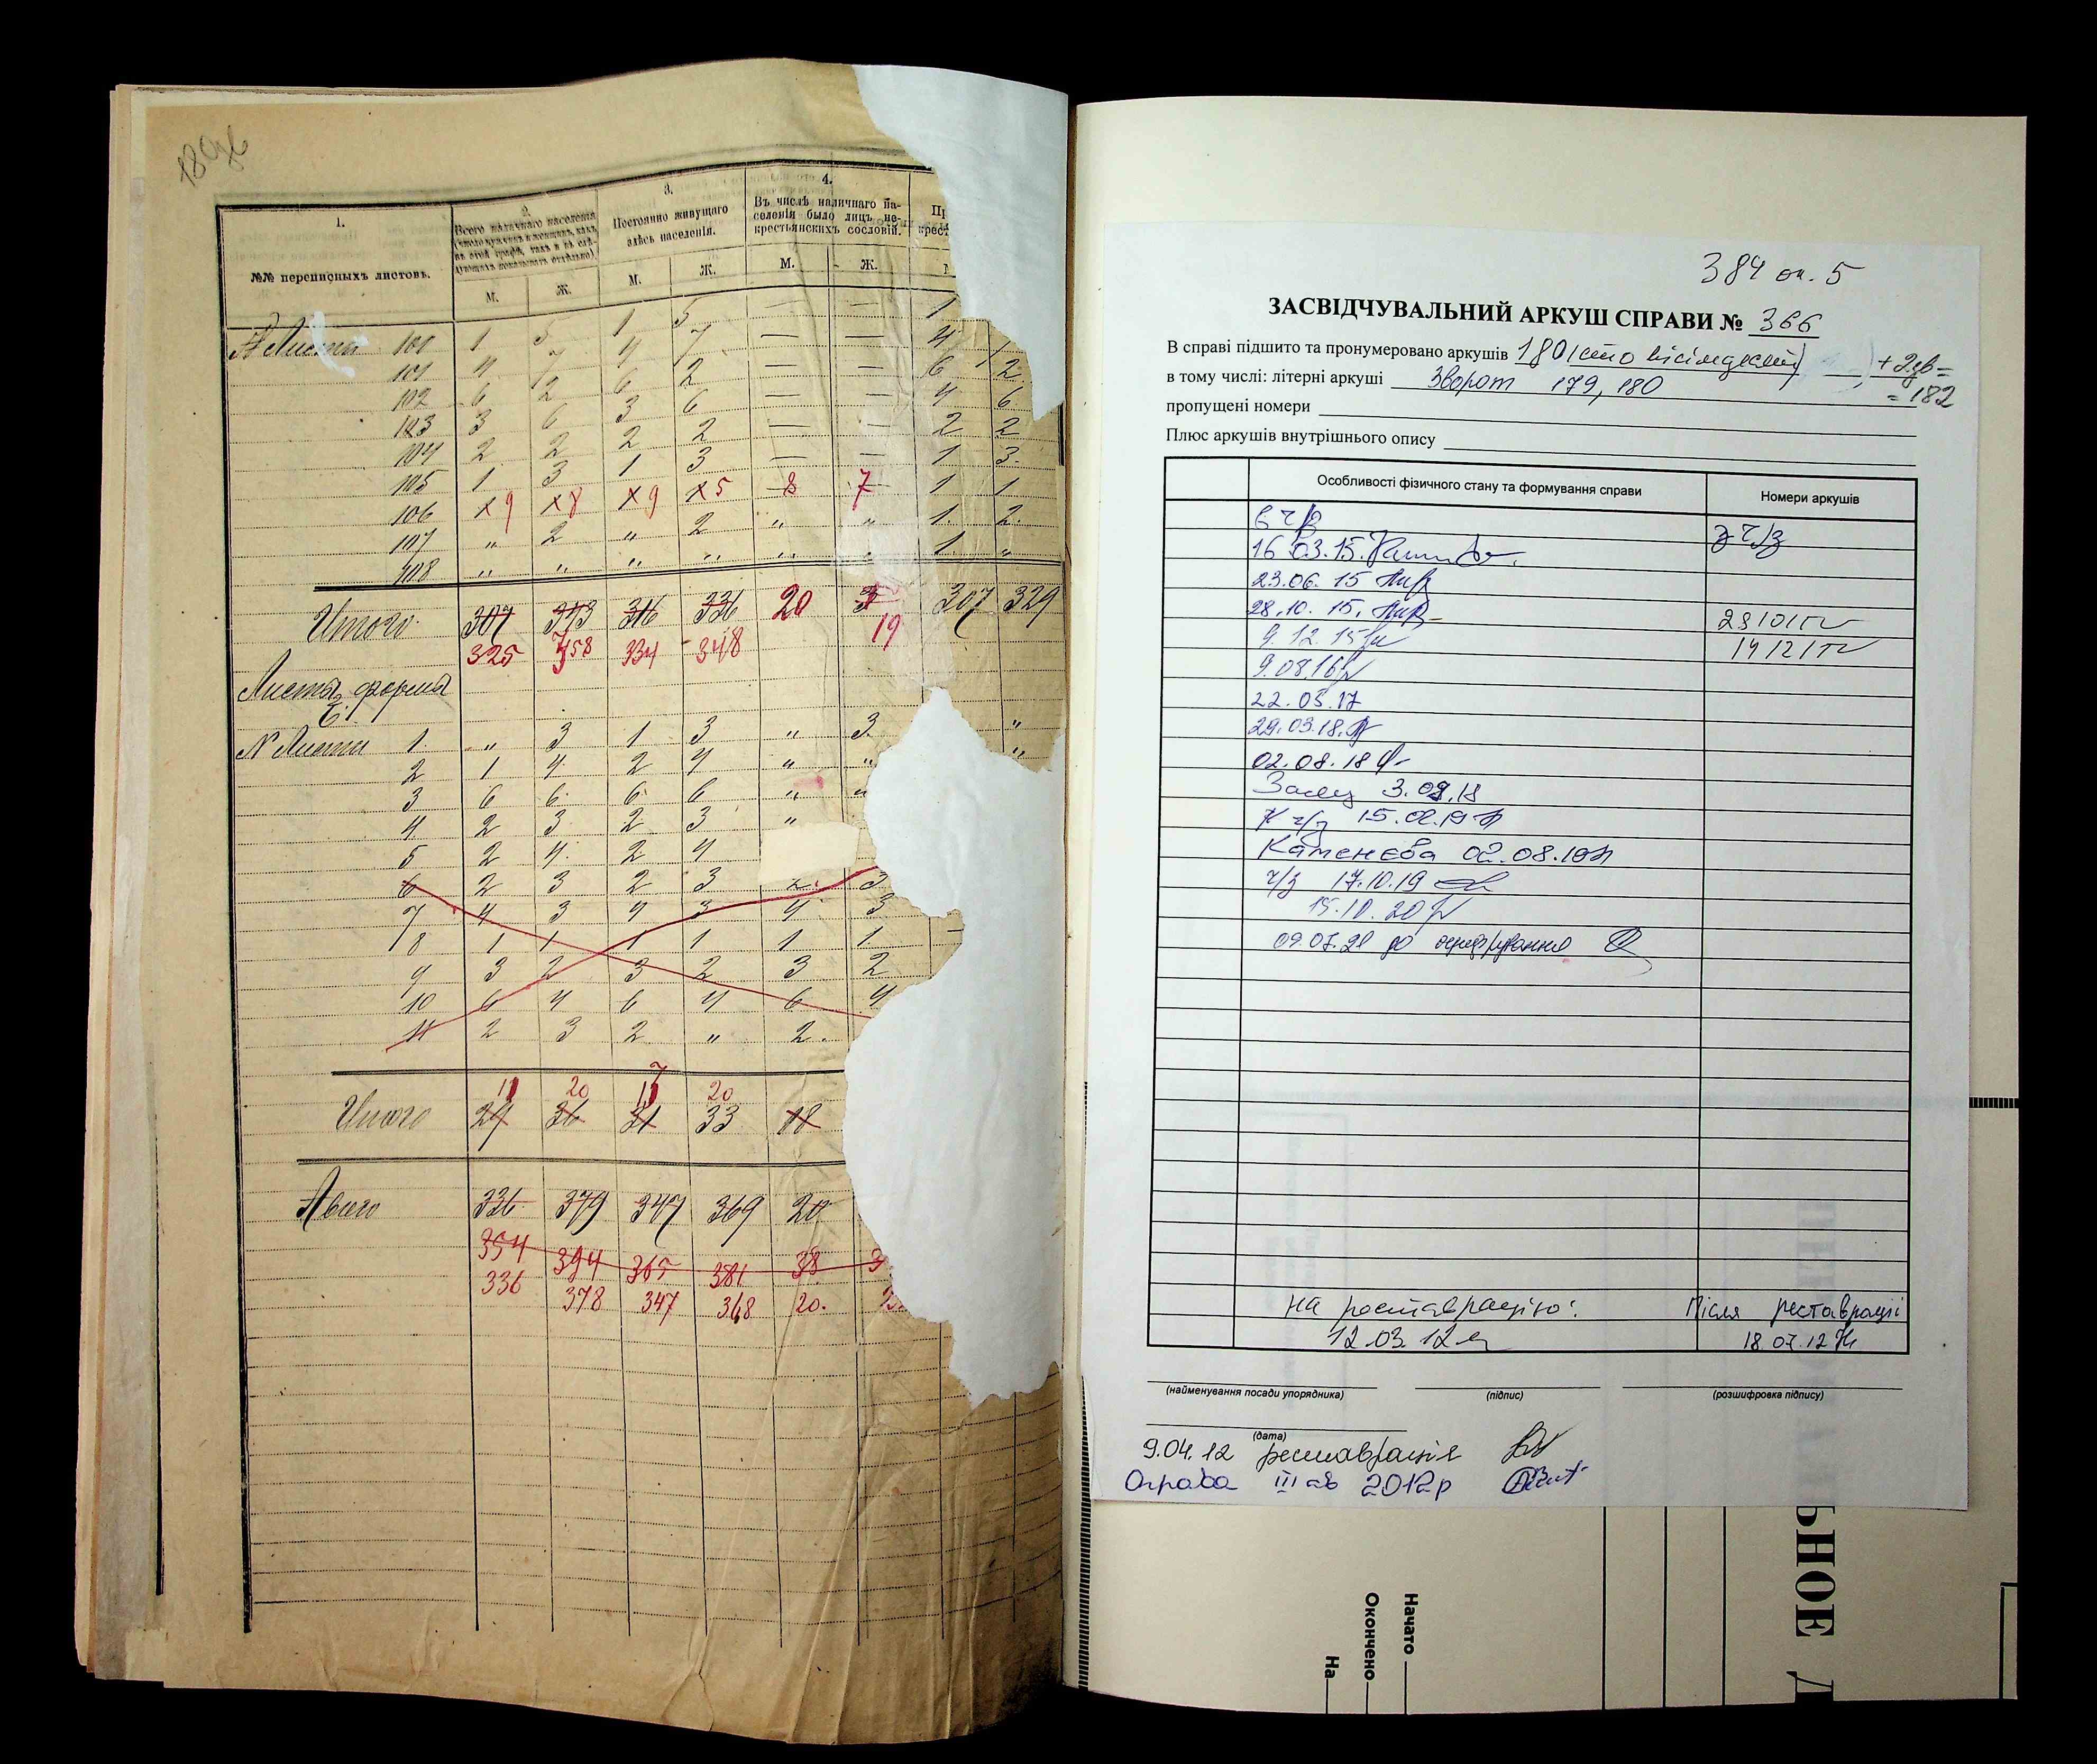 1.
№№ переписныхъ листовъ.
2.
Всего наличнаго населенія
(число мужчинъ и женщинъ, какъ
въ этой графѣ, такъ и въ слѣ-
дующихъ показывать отдѣльно)
М. Ж.
3.
Постоянно живущаго
здѣсь населенія.
М. Ж.
4.
Въ числѣ наличнаго на-
селенія было лицъ не-
крестьянскихъ сословій.
М. Ж.
№ Листа 100 1 5 1 5 — — 1
101 4 7 4 7 — — 4 1
102 6 2 6 2 — — 6 2
103 3 6 3 6 — — 4 6
104 2 2 2 2 — — 2 2
105 1 3 1 3 — — 1 3.
106 х9 х8 х9 х5 8 7 1 1
107 „ 2 „ 2 „ „ 1. 2.
108 „ „ „ „ „ „ 1. „
Итого 307 343 316 336 20 307 329
325 358 334 348 19
Листы формы
Б.
№ Листа 1. „ 3 1 3 „ 3. „
2 1 4 2 4 „ „ „
3 6 6 6 6 „ „
4 2 3 2 3 „
5 2 4 2 4
6 2 3 2 3 2. 3
7 4 3 4 3 4 3
8 1 1 1 1 1 1
9 3 2 3 2 3 2
10 6 4 6 4 6 4
11 2 3 2 „ 2.
20 20
Итого 29 36 31 33 18
Всего 336 379 347 369 20
354 394 365 381 38 3
336 378 347 368 20.
384 оп. 5
ЗАСВІДЧУВАЛЬНИЙ АРКУШ СПРАВИ № 366
В справі підшито та пронумеровано аркушів 180 (сто вісімдесят)
= 182
в тому числі: літерні аркуші зворот 179, 180
пропущені номери
Плюс аркушів внутрішнього опису
Особливості фізичного стану та формування справи Номери аркушів
в ч/з з ч/з
16.03.15.
23.06.15
28.10.15.
9.12.15
9.08.16
22.03.17
29.03.18.
02.08.18
3.09.18
ч/з
Каменєва
ч/з 17.10.19
15.10.20
09.07.21 до оцифрування
на реставрацію: Після реставрації
12.03.12 18.07.12
(найменування посади упорядника) (підпис) (розшифровка підпису)
(дата)
9.04.12 реставрація
Оправа III кв 2012р
Начато
Окончено
На
ЬНОЕ